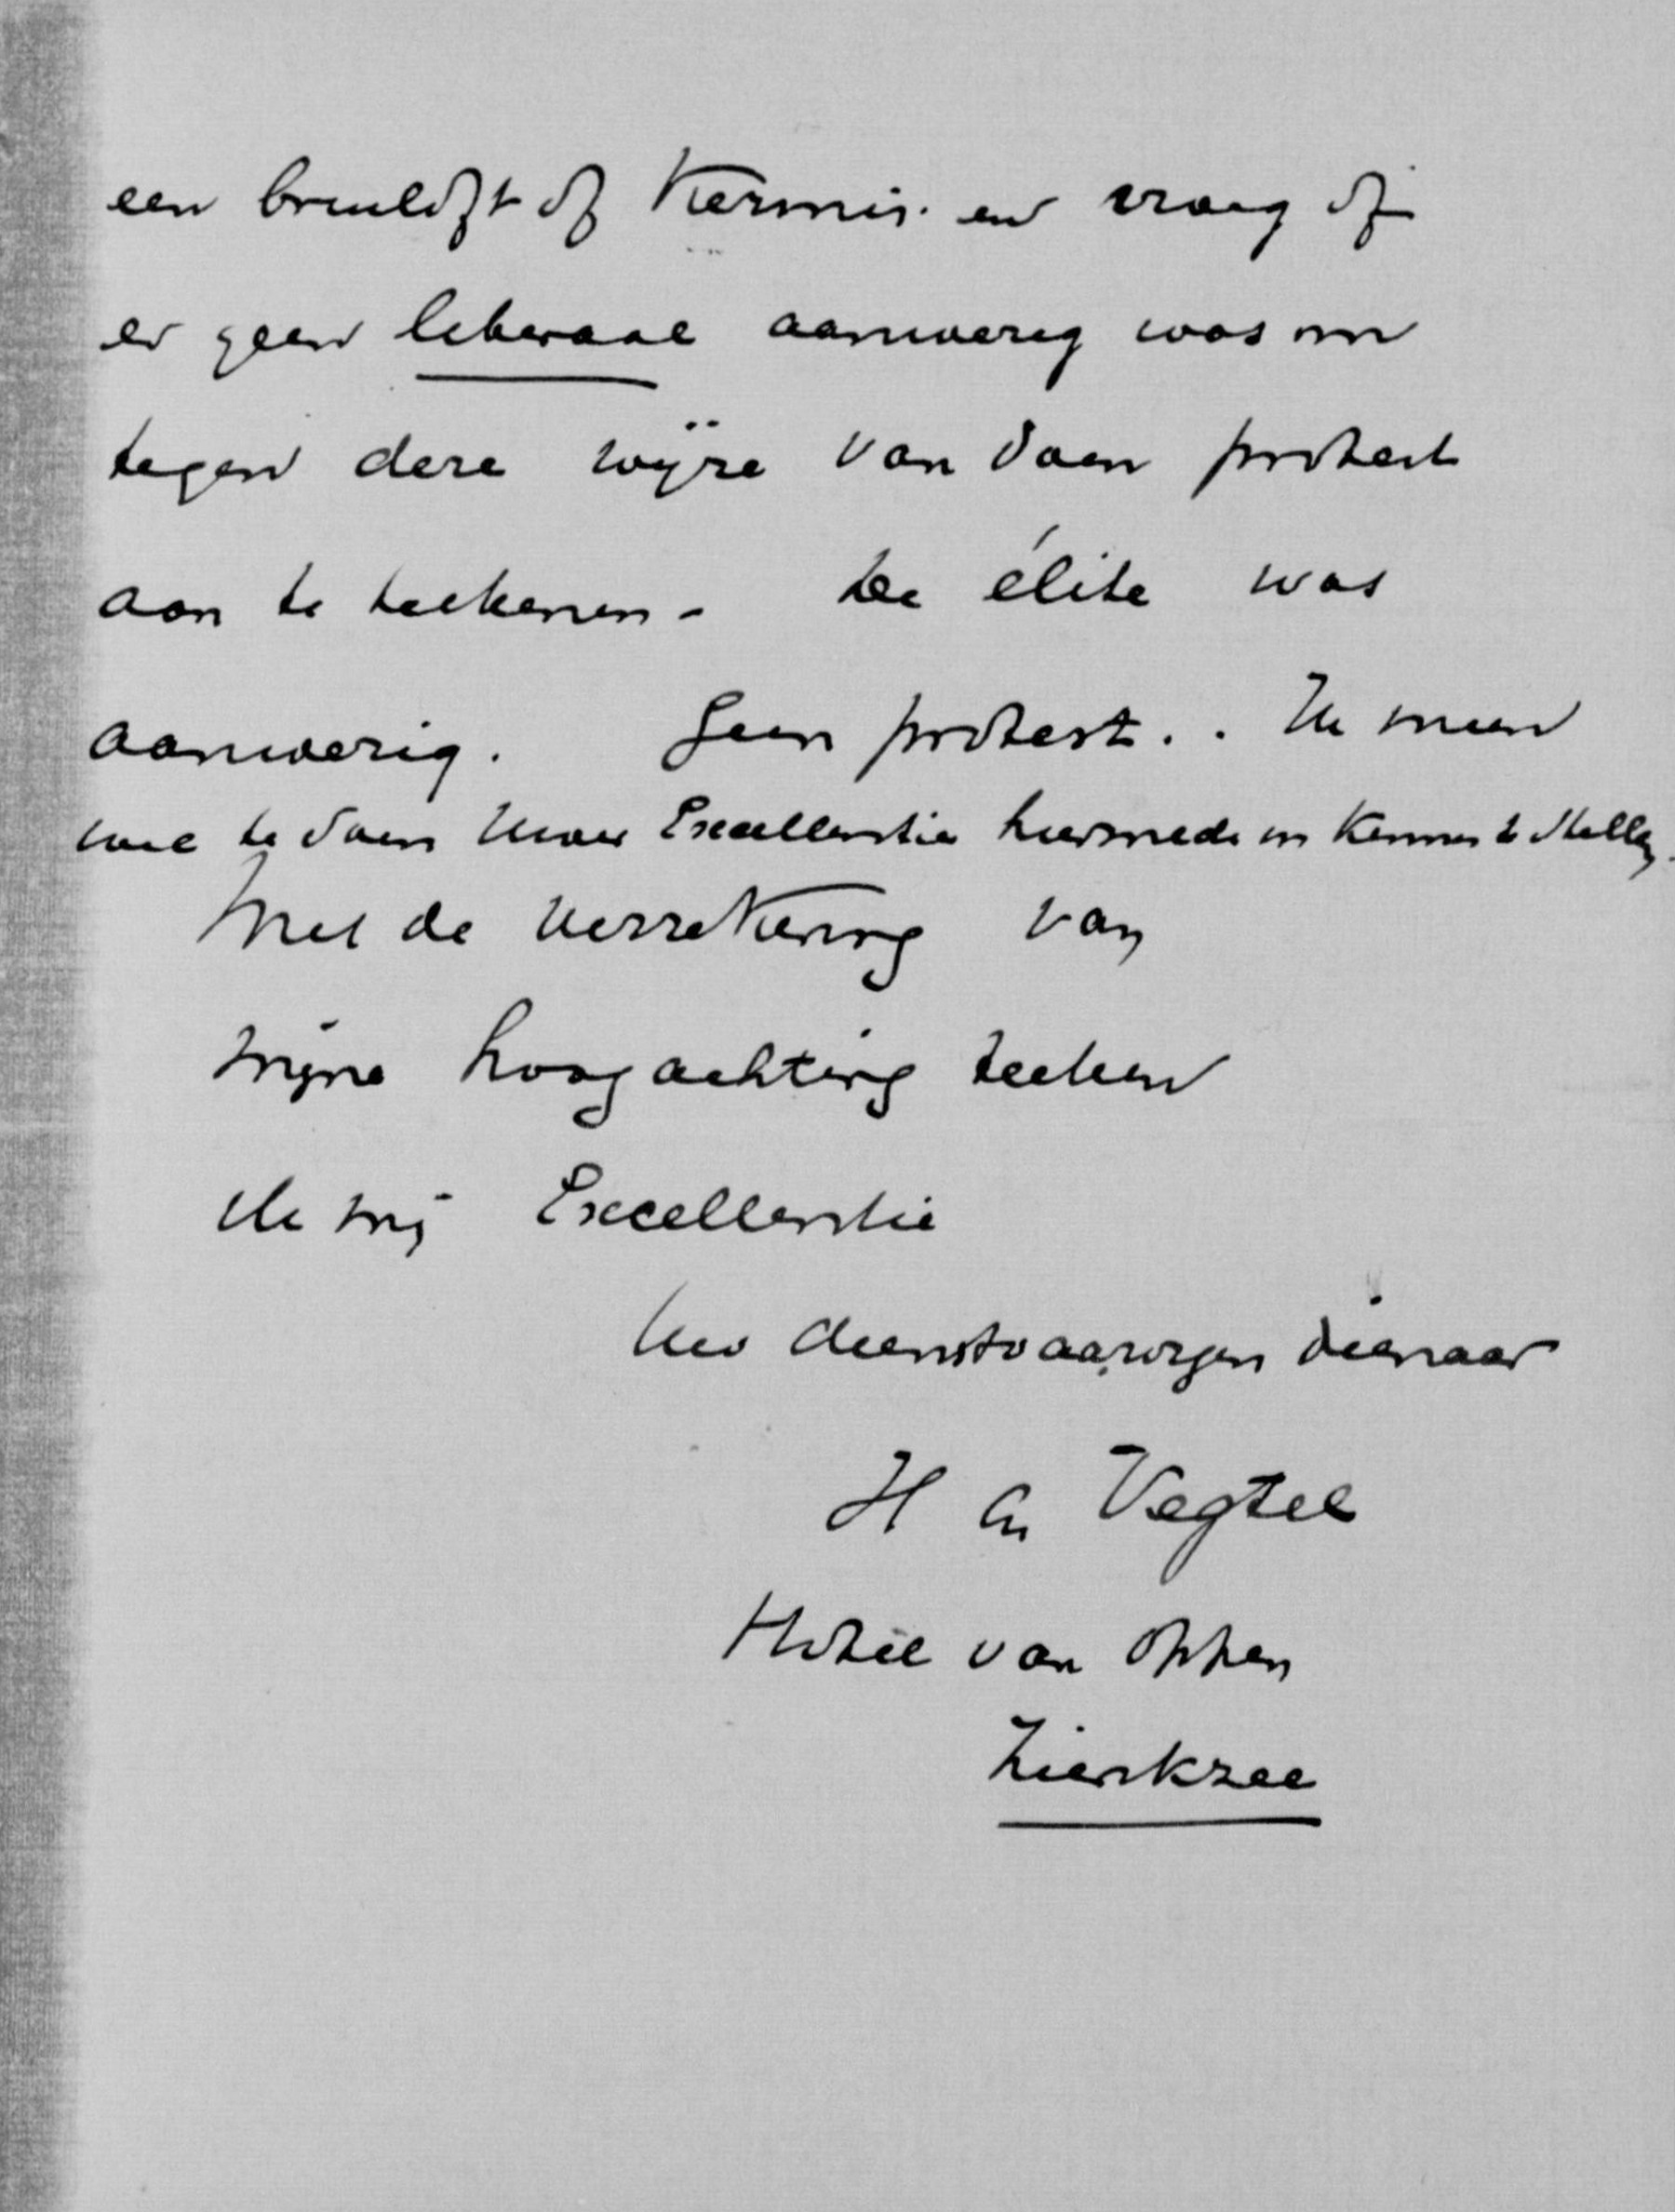 een bruiloft of Kermis. en vraag of
er geen liberaal aanwezig was om
tegen deze wijze van doen protest
aan te teekenen - De élite was
aanwezig. Geen protest. . Ik meen
wel te doen Uwer Excellentie hiermede in kennis te stellen.
Met de verzekering van
mijne hoogachting teeken
ik mij Excellentie
Uw dienstvaardigen dienaar
H Vegtel
Hotel van Oppen
Zierikzee